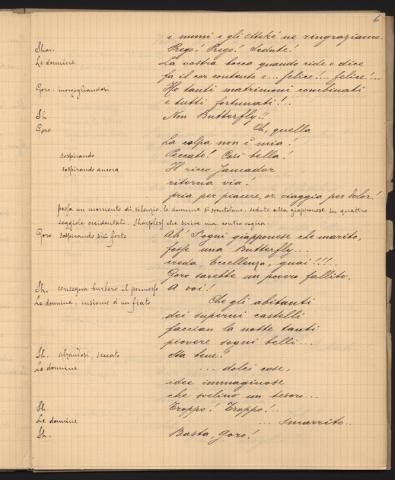 6
e numi e gli Ottoké ne ringraziamo.
Shar. Prego! Prego! Sedute!
Le donnine La vostra bocca quando ride e dice
fa il cor contento e... felice!.. felice!...
Goro: Ho tanti matrimoni combinati
e tutti fortunati!..
Sh. Non Butterfly!!
Goro Oh, quella
la colpa non è mia!
sospirando Peccato! Così bella!
sospirando ancora Il ricco Jamador
ritorna via..
pria per piacere, or viaggia per dolor!
passa un momento di silenzio: le donnine si scentolano, sedute alla giapponese su quattro
seggiole occidentali. Sharpless
Goro sospirando più forte Ah! S'ogni giapponese che marito,
foss'una Butterfly...
creda, Eccellenza, guai!!!..
Goro sarebbe un povero fallito.
Sh. consegna burbero il permesso A voi!
Le donnine, insieme d'un fiato Che gli abitanti
dei superni castelli
faccian la notte tanti
piovere sogni belli...
Sh. alzandosi, seccato Sta bene!
Le donnine ... dolci cose,
idee immaginose
che svelino un tesoro...
Sh. Troppo! Troppo!..
Le donnine ... smarrito...
Sh. Basta, Goro!